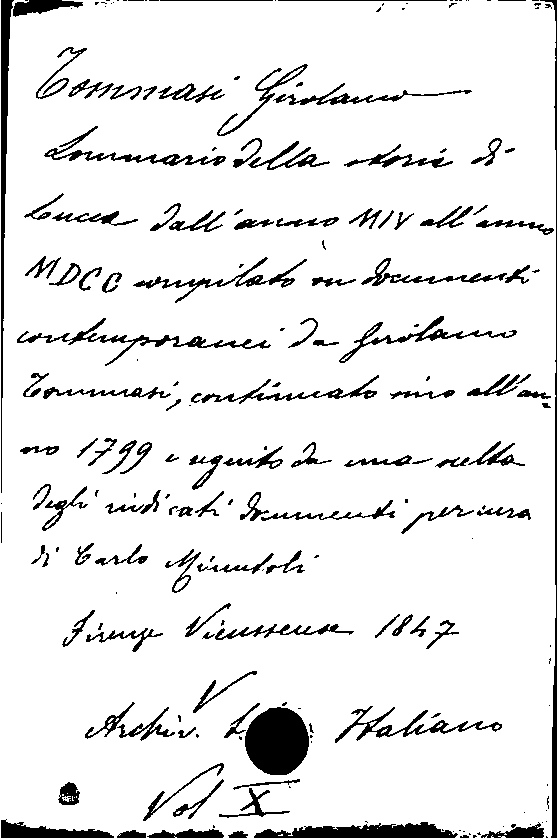 Tommasi Girolamo
Sommario della storia di
Lucca dall'anno MIV all'anno
MDCC compilato su documenti
contemporanei da Girolamo
Tommasi, continuato sino all'an-
no 1799 e seguito da una scelta
degli indicati documenti per cura
di Carlo Minutoli
Firenze Vieusseux 1847
Archiv. Italiano
Vol X